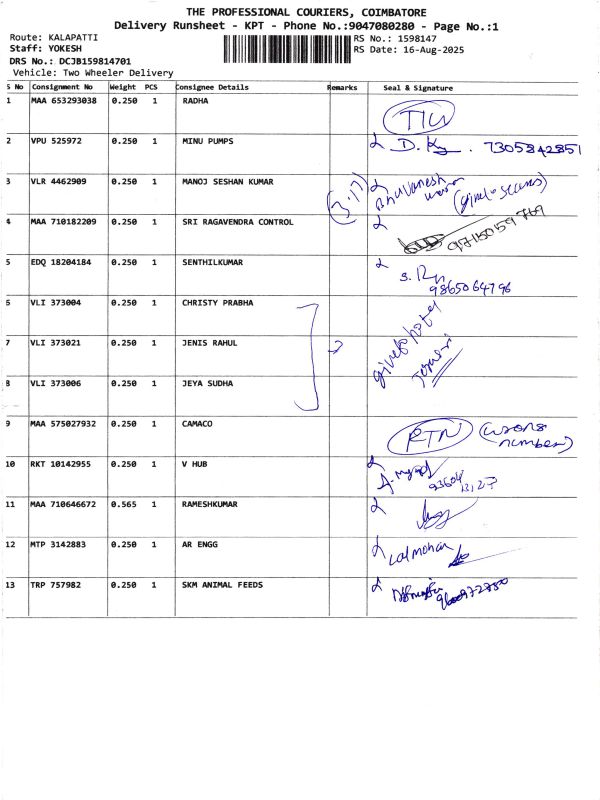 THE PROFESSIONAL COURIERS, COIMBATORE
Delivery Runsheet - KPT - Phone No.:9047080280 - Page No.:1
Route: KALAPATTI
Staff: YOKESH
DRS No.: DCJB159814701
Vehicle: Two Wheeler Delivery
RS No.: 1598147
RS Date: 16-Aug-2025
S No Consignment No Weight PCS Consignee Details Remarks Seal & Signature
1 MAA 653293038 0.250 1 RADHA
2 VPU 525972 0.250 1 MINU PUMPS 7305842851
3 VLR 4462909 0.250 1 MANOJ SESHAN KUMAR (3:17) Bhuvanesh
4 MAA 710182209 0.250 1 SRI RAGAVENDRA CONTROL
5 EDQ 18204184 0.250 1 SENTHILKUMAR
9865064796
6 VLI 373004 0.250 1 CHRISTY PRABHA
7 VLI 373021 0.250 1 JENIS RAHUL
8 VLI 373006 0.250 1 JEYA SUDHA
9 MAA 575027932 0.250 1 CAMACO RTN (wrong
number)
10 RKT 10142955 0.250 1 V HUB
11 MAA 710646672 0.565 1 RAMESHKUMAR
12 MTP 3142883 0.250 1 AR ENGG Lalmohan
13 TRP 757982 0.250 1 SKM ANIMAL FEEDS